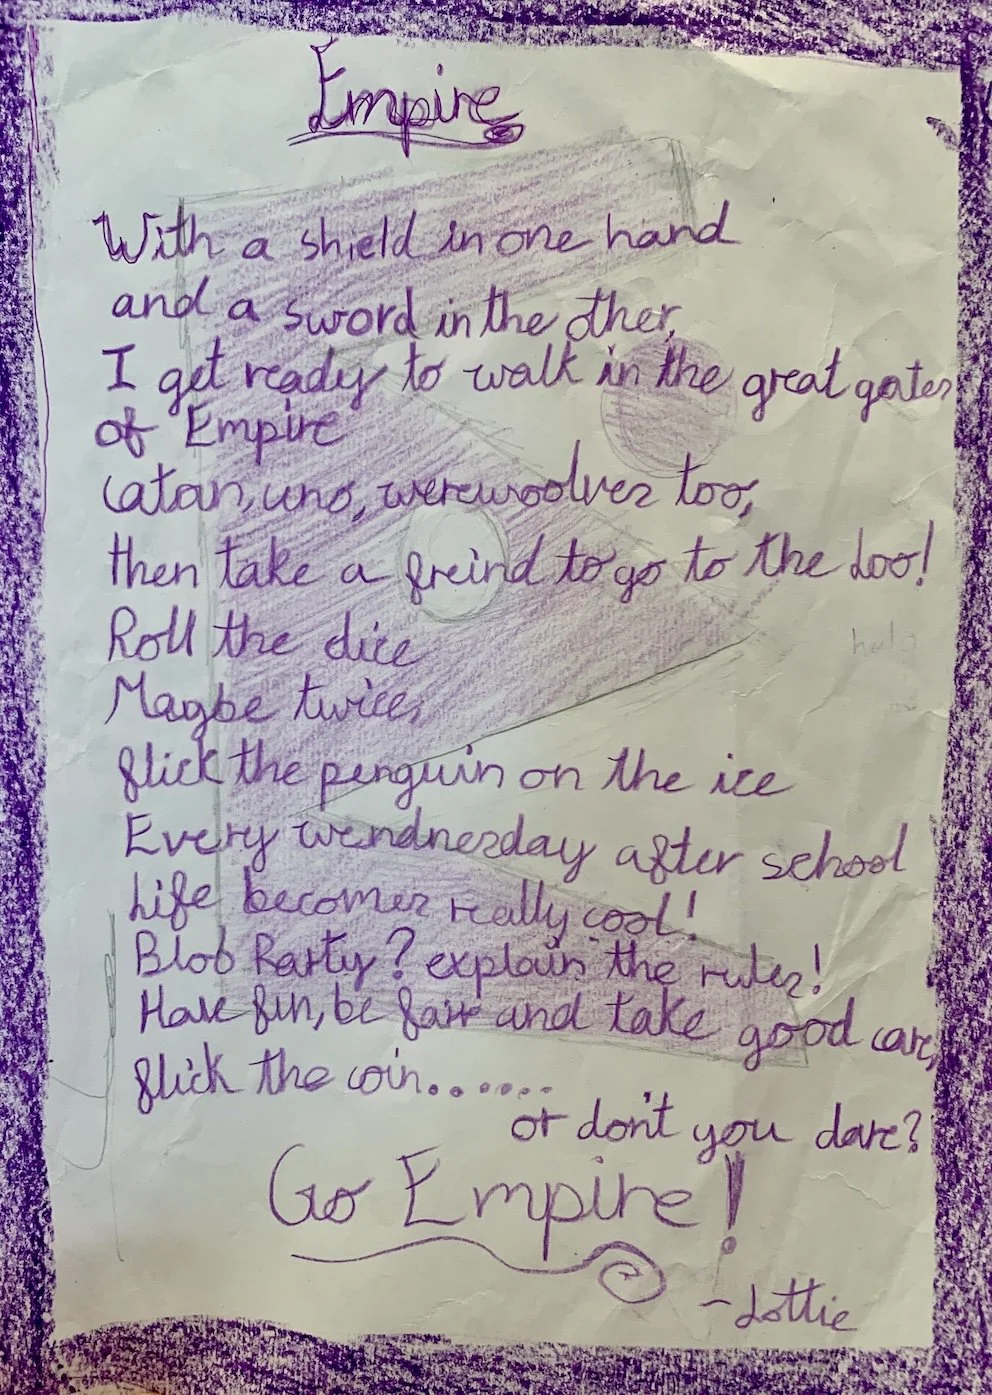 Empire
With a shield in one hand
and a sword in the other,
I get ready to walk in the great gates
of Empire
Catan, uno, werewoolves too,
then take a freind to go to the Loo!
Roll the dice
Maybe twice,
flick the penguin on the ice
Every wendnesday after school
Life becomes really cool!
Blob Party? explain the rules!
Have fun, be fair and take good care,
flick the coin.......
or don't you dare?
Go Empire!
- Lottie